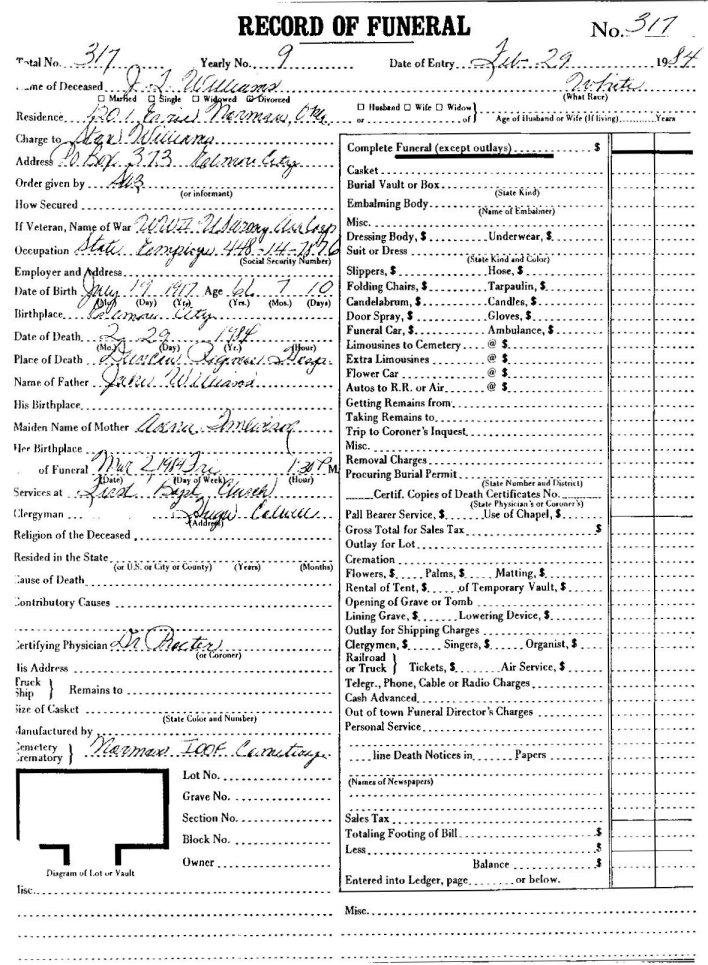 RECORD OF FUNERAL No. 317
Total No. 317 Yearly No. 9 Date of Entry Feb 29 1984
me of Deceased J. Williams White
☐ Married ☐ Single ☐ Widowed ☑ Divorced (What Race)
Residence 201 Norman, Okla ☐ Husband ☐ Wife ☐ Widow } or of Age of Husband or Wife (If living) Years
Charge to Williams
Address PO Box 373 City
Order given by
(or informant)
How Secured
If Veteran, Name of War WWII US Army Air Corps
Occupation State Employee 448-14-7876
(Social Security Number)
Employer and Address
Date of Birth July 19 1917 Age 66 7 10
(Mo.) (Day) (Yr.) (Yrs.) (Mos.) (Days)
Birthplace City
Date of Death 2 29 1984
(Mo.) (Day) (Yr.) (Hour)
Place of Death Duncan Hosp.
Name of Father Williams
His Birthplace
Maiden Name of Mother
Her Birthplace
of Funeral Mar 2 1984 Fri 1:30 P M
(Date) (Day of Week) (Hour)
Services at First Bapt Church
Clergyman
(Address)
Religion of the Deceased
Resided in the State
(or U.S. or City or County) (Years) (Months)
Cause of Death
Contributory Causes
Certifying Physician Dr
(or Coroner)
His Address
Truck Ship } Remains to
Size of Casket
(State Color and Number)
Manufactured by
Cemetery Crematory } Norman IOOF Cemetery
Lot No.
Grave No.
Section No.
Block No.
Owner
Diagram of Lot or Vault
Misc.
Complete Funeral (except outlays) $
Casket
Burial Vault or Box
(State Kind)
Embalming Body
(Name of Embalmer)
Misc.
Dressing Body, $ Underwear, $
Suit or Dress
(State Kind and Color)
Slippers, $ Hose, $
Folding Chairs, $ Tarpaulin, $
Candelabrum, $ Candles, $
Door Spray, $ Gloves, $
Funeral Car, $ Ambulance, $
Limousines to Cemetery @ $
Extra Limousines @ $
Flower Car @ $
Autos to R.R. or Air @ $
Getting Remains from
Taking Remains to
Trip to Coroner's Inquest
Misc.
Removal Charges
Procuring Burial Permit
(State Number and District)
Certif. Copies of Death Certificates No.
(State Physician's or Coroner's)
Pall Bearer Service, $ Use of Chapel, $
Gross Total for Sales Tax $
Outlay for Lot
Cremation
Flowers, $ Palms, $ Matting, $
Rental of Tent, $ of Temporary Vault, $
Opening of Grave or Tomb
Lining Grave, $ Lowering Device, $
Outlay for Shipping Charges
Clergymen, $ Singers, $ Organist, $
Railroad or Truck } Tickets, $ Air Service, $
Telegr., Phone, Cable or Radio Charges
Cash Advanced
Out of town Funeral Director's Charges
Personal Service
line Death Notices in Papers
(Names of Newspapers)
Sales Tax
Totaling Footing of Bill $
Less $
Balance $
Entered into Ledger, page or below.
Misc.